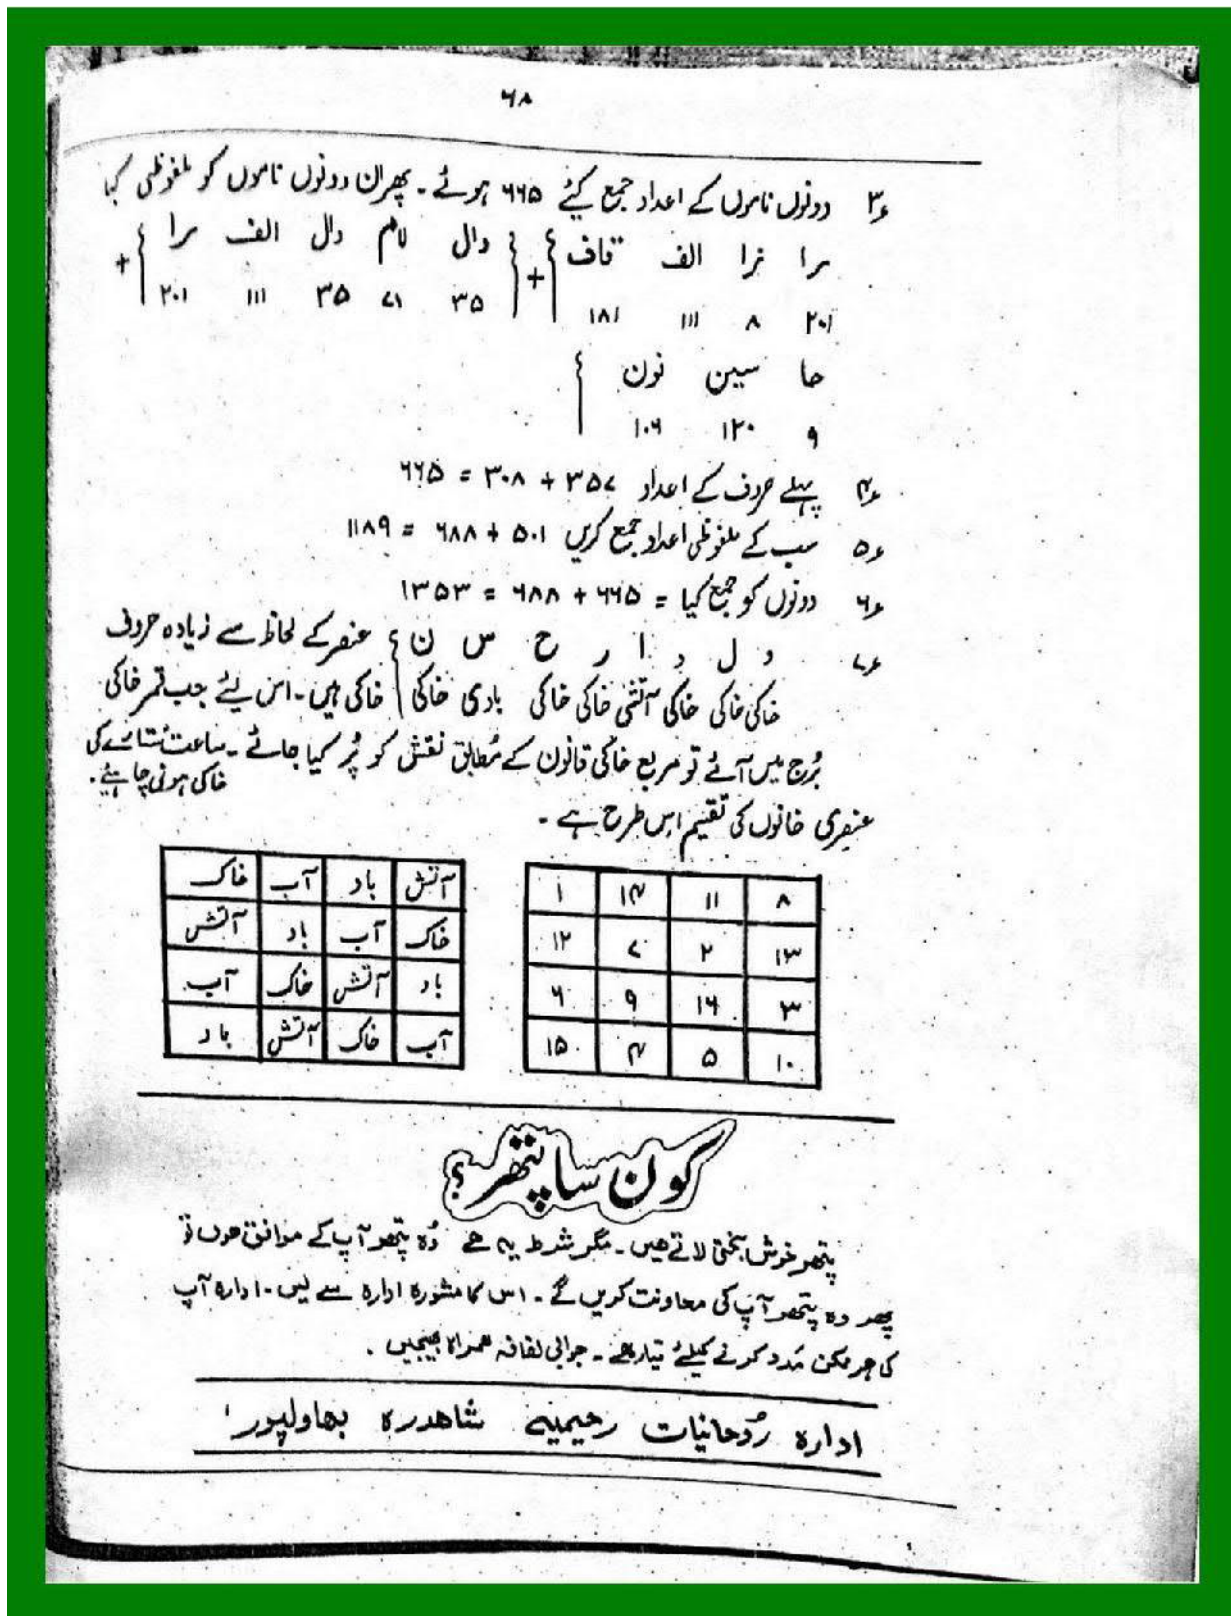 ۶۸
۳؍ دونوں ناموں کے اعداد جمع کیٔے ۶۶۵ ہوئے۔ پھر ان دونوں ناموں کو ملفوظی کیا
را زا الف قاف } + { دال لام دال الف را } +
۲۰۱ ۸ ۱۱۱ ۱۸۱ ۳۵ ۷۱ ۳۵ ۱۱۱ ۲۰۱
حا سین نون }
۹ ۱۲۰ ۱۰۶
۴؍ پہلے حروف کے اعداد ۳۵۷ + ۳۰۸ = ۶۶۵
۵؍ سب کے ملفوظی اعداد جمع کریں ۵۰۱ + ۶۸۸ = ۱۱۸۹
۶؍ دونوں کو جمع کیا = ۶۶۵ + ۶۸۸ = ۱۳۵۳
۷؍ د ل د ا ر ح س ن } عنصر کے لحاظ سے زیادہ حروف
خاکی خاکی خاکی آتشی خاکی خاکی بادی خاکی } خاکی ہیں۔ اس لیٔے جب قمر خاکی
بُرج میں آئے تو مربع خاکی قانون کے مُطابق نقش کو پُر کیا جائے۔ ساعت ستارے کی
خاکی ہونی چاہیٔے۔
عنصری خانوں کی تقیم اس طرح ہے۔
۸ ۱۱ ۱۴ ۱
۱۳ ۲ ۷ ۱۲
۳ ۱۶ ۹ ۶
۱۰ ۵ ۴ ۱۵
آتش باد آب خاک
خاک آب باد آتش
باد آتش خاک آب
آب خاک آتش باد
کون سا پتھر؟
پتھر خوش بختی لاتے ہیں۔ مگر شرط یہ ہے وُہ پتھر آپ کے موافق ہوں تو
پھر وہ پتھر آپ کی معاونت کریں گے۔ اس کا مشورہ ادارہ سے لیں۔ ادارہ آپ
کی ہر ممکن مَدد کرنے کیلئے تیار ہے۔ جوابی لفافہ ہمراہ بھیجیں۔
ادارہ رُوحانیات رحیمیہ شاھدرہ بھاولپور